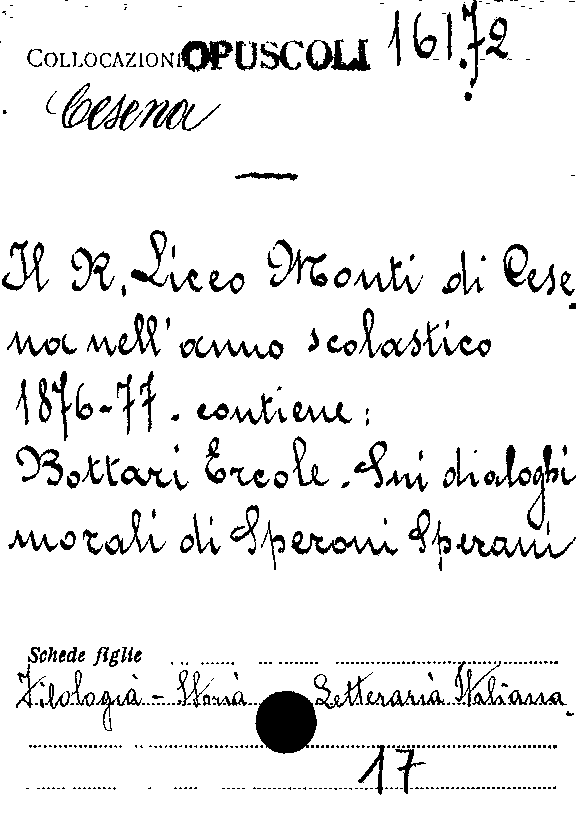 COLLOCAZIONE OPUSCOLI 161.72
Cesena
Il R. Liceo Monti di Cese
na nell'anno scolastico
1876-77. contiene:
Bottari Ercole. Sui dialoghi
morali di Speroni Sperani
Schede figlie
Filologià - Storià Letterarià Italiana.
17